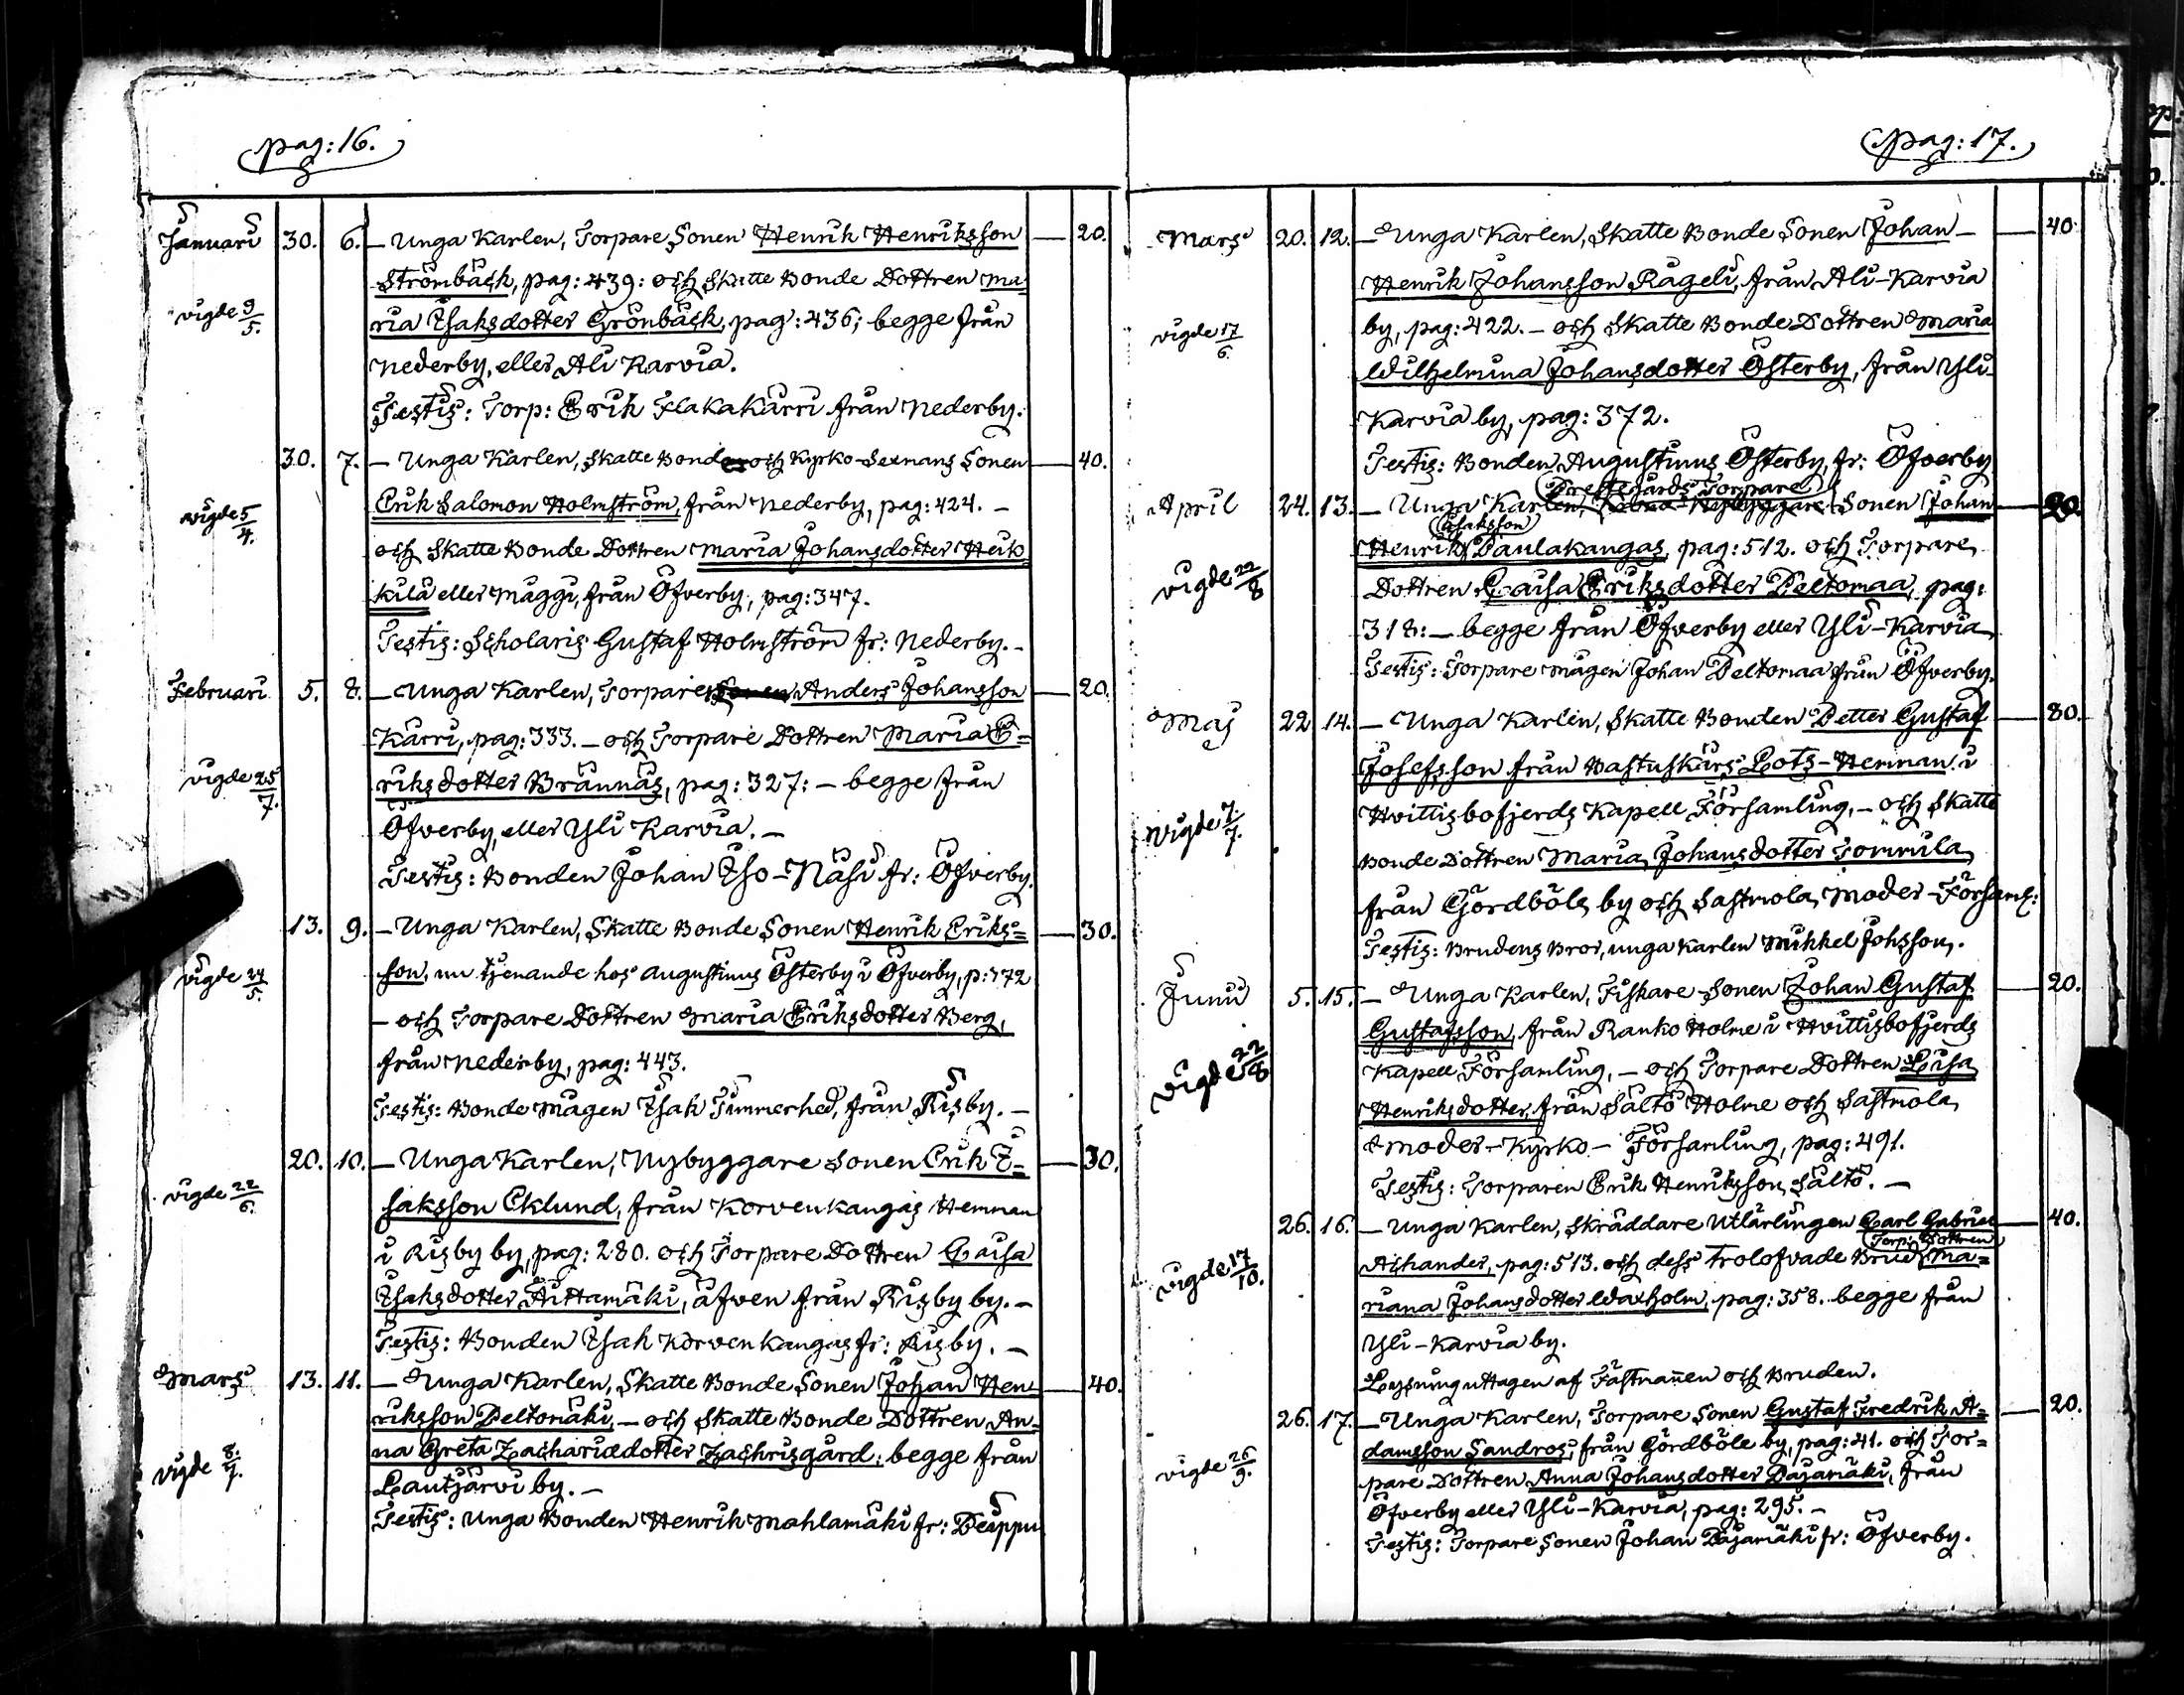 pag: 16.
Januari 30. 6. — Unga Karlen, Torpare Sonen Henrik Henriksson — 20.
Strömbäck, pag: 439: och Skatte Bonde Dottren Ma-
vigde 9/5. ria Isaksdotter Grönbäck, pag: 436; begge från
Nederby, eller Ali Karvia.
Testis: Torp: Erik Flakakärri från Nederby.
30. 7. — Unga Karlen, Skatte Bonde och Kyrko-Sexmans Sonen — 40.
vigde 5/4. Erik Salomon Holmström, från Nederby, pag: 424. —
och Skatte Bonde Dottren Maria Johansdotter Heik
kilä eller Mäggi, från Öfverby, pag: 347.
Testis: Scholaris Gustaf Holmström fr: Nederby. -
Februari 5. 8. — Unga Karlen, Torpare Sonen Anders Johansson — 20.
Kärri, pag: 333. — och Torpare Dottren Maria E=
vigde 25/7. riksdotter Brännäs, pag: 327: — begge från
Öfverby, eller Yli Karvia. —
Testis: Bonden Johan Iso-Näsi fr: Öfverby.
13. 9. — Unga Karlen, Skatte Bonde Sonen Henrik Eriks= — 30.
vigde 24/5. son, nu tjenande hos Augustinus Österby i Öfverby, p: 372
— och Torpare Dottren Maria Eriksdotter Berg,
från Nederby, pag: 443.
Testis: Bonde Mågen Isak Timmerhed, från Risby. —
20. 10. — Unga Karlen, Nybyggare Sonen Erik I= — 30.
vigde 22/6. saksson Eklund, från Korvenkangas Hemman
i Risby by, pag: 280. och Torpare Dottren Caisa
Isaksdotter Aittamäki, äfwen från Risby by. —
Testis: Bonden Isak Korvenkangas fr: Risby. —
Mars 13. 11. — Unga Karlen, Skatte Bonde Sonen Johan Hen- — 40.
riksson Peltomäki, — och Skatte Bonde Dottren An-
vigde 8/7. na Greta Zachariædotter Zachrisgård; begge från
Lautjärvi by. —
Testis: Unga Bonden Henrik Mahlamäki fr: Peippu
pag: 17.
Mars 20. 12. — Unga Karlen, Skatte Bonde Sonen Johan — — 40.
Henrik Johansson Rageli, från Ali-Karvia
vigde 17/6. by, pag: 422. — och Skatte Bonde Dottren Maria
Wilhelmina Johansdotter Österby, från Yli-
Karvia by, pag: 372.
Testis: Bonden Augustinus Österby, fr: Öfverby
Prestegårds Torpare
April 24. 13. — Unga Karlen, Krono-Nybyggare Sonen Johan — 20
Isaksson
Henrik Paulakangas, pag: 512. och Torpare
vigde 22/8 Dottren Caisa Eriksdotter Peltomaa, pag:
318: — begge från Öfverby eller Yli-Karvia
Testis: Torpare Mågen Johan Peltomaa från Öfverby.
Maj 22 14. — Unga Karlen, Skatte Bonden Petter Gustaf — 80.
Josefsson från Bastuskärs Lots-Hemman i
vigde 7/7. Hvittisbofjerds Kapell Församling, — och Skatte
Bonde Dottren Maria Johansdotter Tommila,
från Gördböle by och Sastmola Moder-Församl:
Testis: Brudens Bror, unga Karlen Mikkel Johsson.
Junii 5. 15. — Unga Karlen, Fiskare-Sonen Johan Gustaf — 20.
Gustafsson, från Ranko Holme i Hvittisbofjerds
vigde 22/8 Kapell Församling, — och Torpare Dottren Lisa
Henriksdotter, från Sältö Holme och Sastmola
Moder-Kyrko-Församling, pag: 491.
Testis: Torparen Erik Henriksson Sältö. —
26. 16. — Unga Karlen, Skräddare Utlärlingen Carl Gabriel — 40.
Torp: Dottren
vigde 17/10. Achander, pag: 513. och dess trolofvade Brud Ma=
riana Johansdotter Waxholm, pag: 358. begge från
Yli-Karvia by.
Lysning uttagen af Fästmannen och Bruden.
26. 17. — Unga Karlen, Torpare Sonen Gustaf Fredrik A= — 20.
vigde 26/9. damsson Sandros, från Gördböle by, pag: 41. och Tor=
pare Dottren Anna Johansdotter Pajamäki, från
Öfverby eller Yli-Karvia, pag: 295. —
Testis: Torpare Sonen Johan Pajamäki fr: Öfverby.